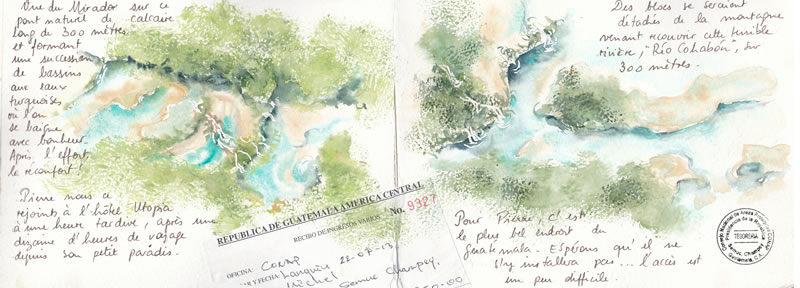 Vue du Mirador sur ce
pont naturel de calcaire
long de 300 mètres
et formant
une succession
de bassins
aux eaux
turquoises
où l'on
se baigne
avec bonheur.
Après l'effort,
le réconfort !
Pierre nous a
rejoints à l'hôtel Utopia
à une heure tardive, après une
dizaine d'heures de voyage
depuis son petit paradis.
REPUBLICA DE GUATEMALA AMERICA CENTRAL
RECIBO DE INGRESOS VARIOS
No. 9327
OFICINA: CONAP
Y FECHA: Lanquín 22-07-13.
Michel
Semuc Champey.
Des blocs se seraient
détachés de la montagne
venant recouvrir cette terrible
rivière, "Río Cahabón", sur
300 mètres.
Pour Pierre, c'est
le plus bel endroit du
Guatemala. Espérons qu'il ne
s'y installera pas... l'accès est
un peu difficile.
Consejo Nacional de Areas Protegidas
Presidencia de la República
TESORERIA
Semuc Champey
Guatemala, C.A.